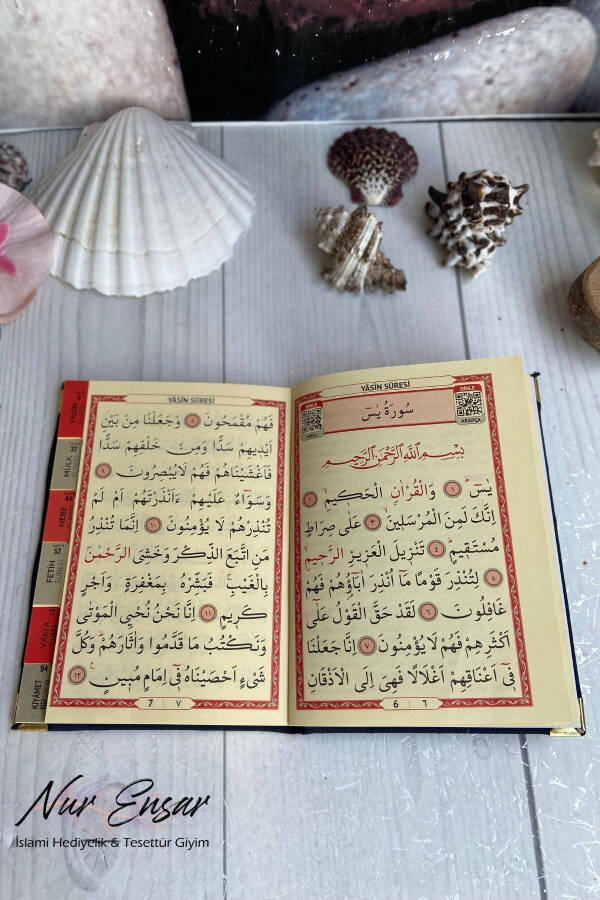 YÂSÎN SÛRESİ
DİNLE
سُورَةُ يٰسٓ
ARAPÇA
بِسْمِ اللّٰهِ الرَّحْمٰنِ الرَّحِيمِ
يٰسٓ ﴿١﴾ وَالْقُرْاٰنِ الْحَكِيمِ ﴿٢﴾
اِنَّكَ لَمِنَ الْمُرْسَلِينَ ﴿٣﴾ عَلٰى صِرَاطٍ
مُسْتَقِيمٍ ﴿٤﴾ تَنْزِيلَ الْعَزِيزِ الرَّحِيمِ
﴿٥﴾ لِتُنْذِرَ قَوْمًا مَٓا اُنْذِرَ اٰبَٓاؤُهُمْ فَهُمْ
غَافِلُونَ ﴿٦﴾ لَقَدْ حَقَّ الْقَوْلُ عَلٰٓى
اَكْثَرِهِمْ فَهُمْ لَا يُؤْمِنُونَ ﴿٧﴾ اِنَّا جَعَلْنَا
فِٓى اَعْنَاقِهِمْ اَغْلَالًا فَهِىَ اِلَى الْاَذْقَانِ
6 ٦
YÂSÎN SÛRESİ
فَهُمْ مُقْمَحُونَ ﴿٨﴾ وَجَعَلْنَا مِنْ بَيْنِ
اَيْدِيهِمْ سَدًّا وَمِنْ خَلْفِهِمْ سَدًّا
فَاَغْشَيْنَاهُمْ فَهُمْ لَا يُبْصِرُونَ ﴿٩﴾
وَسَوَٓاءٌ عَلَيْهِمْ ءَاَنْذَرْتَهُمْ اَمْ لَمْ
تُنْذِرْهُمْ لَا يُؤْمِنُونَ ﴿١٠﴾ اِنَّمَا تُنْذِرُ
مَنِ اتَّبَعَ الذِّكْرَ وَخَشِىَ الرَّحْمٰنَ
بِالْغَيْبِۚ فَبَشِّرْهُ بِمَغْفِرَةٍ وَاَجْرٍ
كَرِيمٍ ﴿١١﴾ اِنَّا نَحْنُ نُحْيِى الْمَوْتٰى
وَنَكْتُبُ مَا قَدَّمُوا وَاٰثَارَهُمْ وَكُلَّ
شَىْءٍ اَحْصَيْنَاهُ فِٓى اِمَامٍ مُبِينٍ ﴿١٢﴾
7 ٧
YÂSÎN
MÜLK
NEBE
FETİH SÛRESİ 52
VÂKIA
KIYÂMET 94
Nur Ensar
İslami Hediyelik & Tesettür Giyim